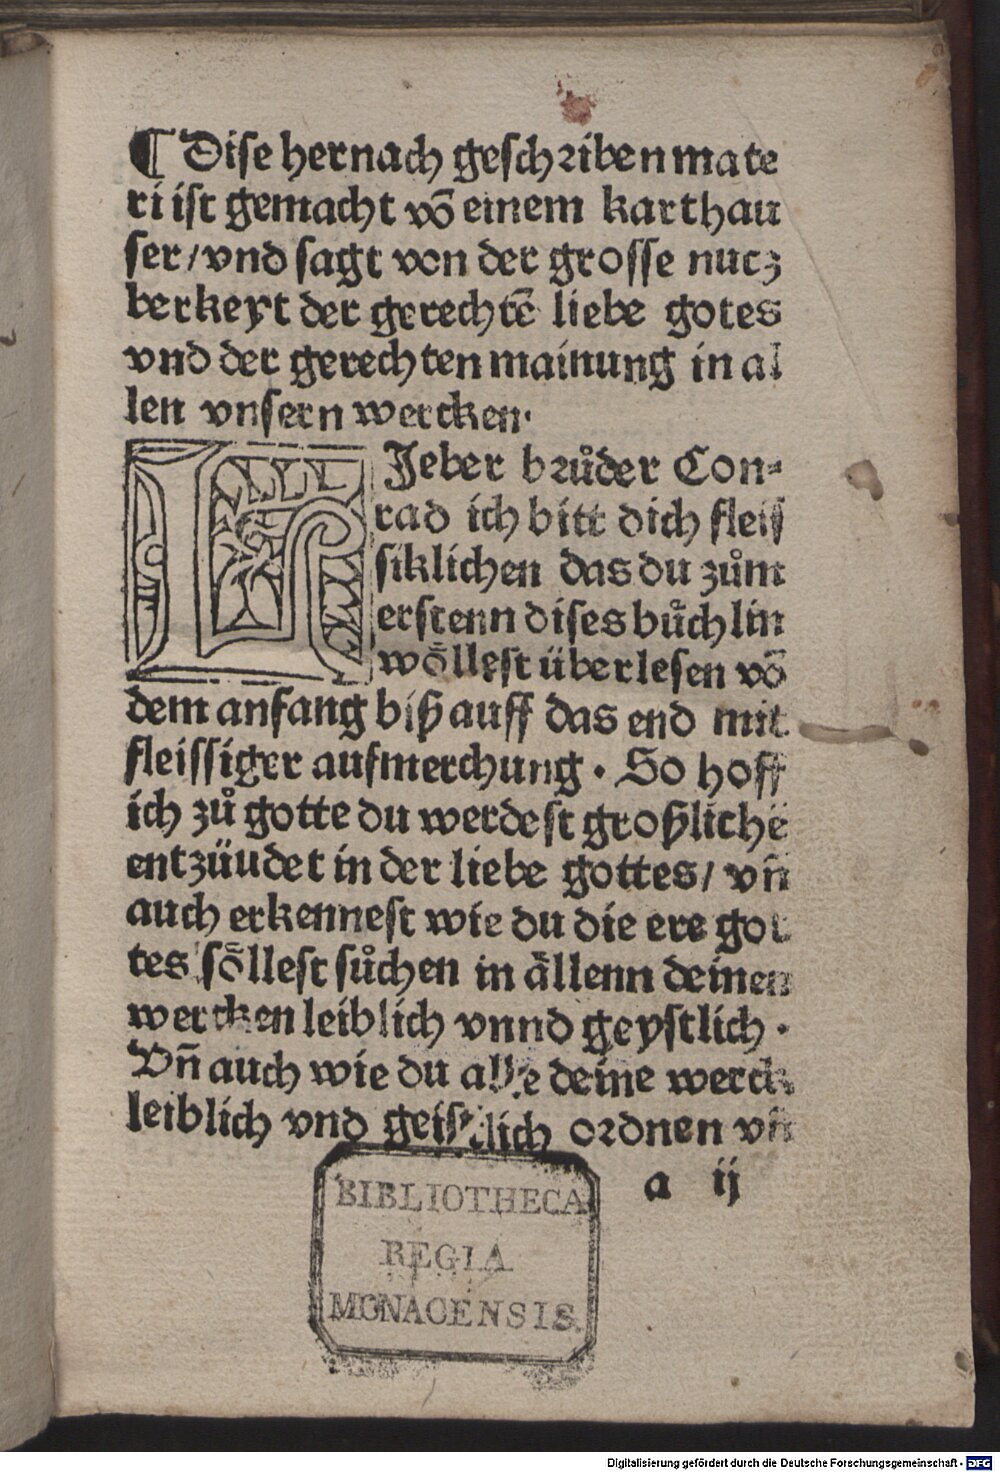 ¶ Dise hernach geschriben mate
ri ist gemacht vō einem karthau
ser/ vnd sagt von der grosse nucz
berkeyt der gerechtē liebe gotes
vnd der gerechten mainung in al
len vnsern wercken.
LIeber brůder Con-
rad ich bitt dich fleis
siklichen das du zům
erstenn dises bůchlin
wo̊llest überlesen vō
dem anfang biß auff das end mit
fleissiger aufmerchung. So hoff
ich zů gotte du werdest großlichē
entzüudet in der liebe gottes/ vn̄
auch erkennest wie du die ere got
tes so̊llest sůchen in ällenn deinen
wercken leiblich vnnd geystlich.
Vn̄ auch wie du alle deine werck
leiblich vnd geistlich ordnen vn̄
a ij
BIBLIOTHECA
REGIA
MONACENSIS.
Digitalisierung gefördert durch die Deutsche Forschungsgemeinschaft - DFG